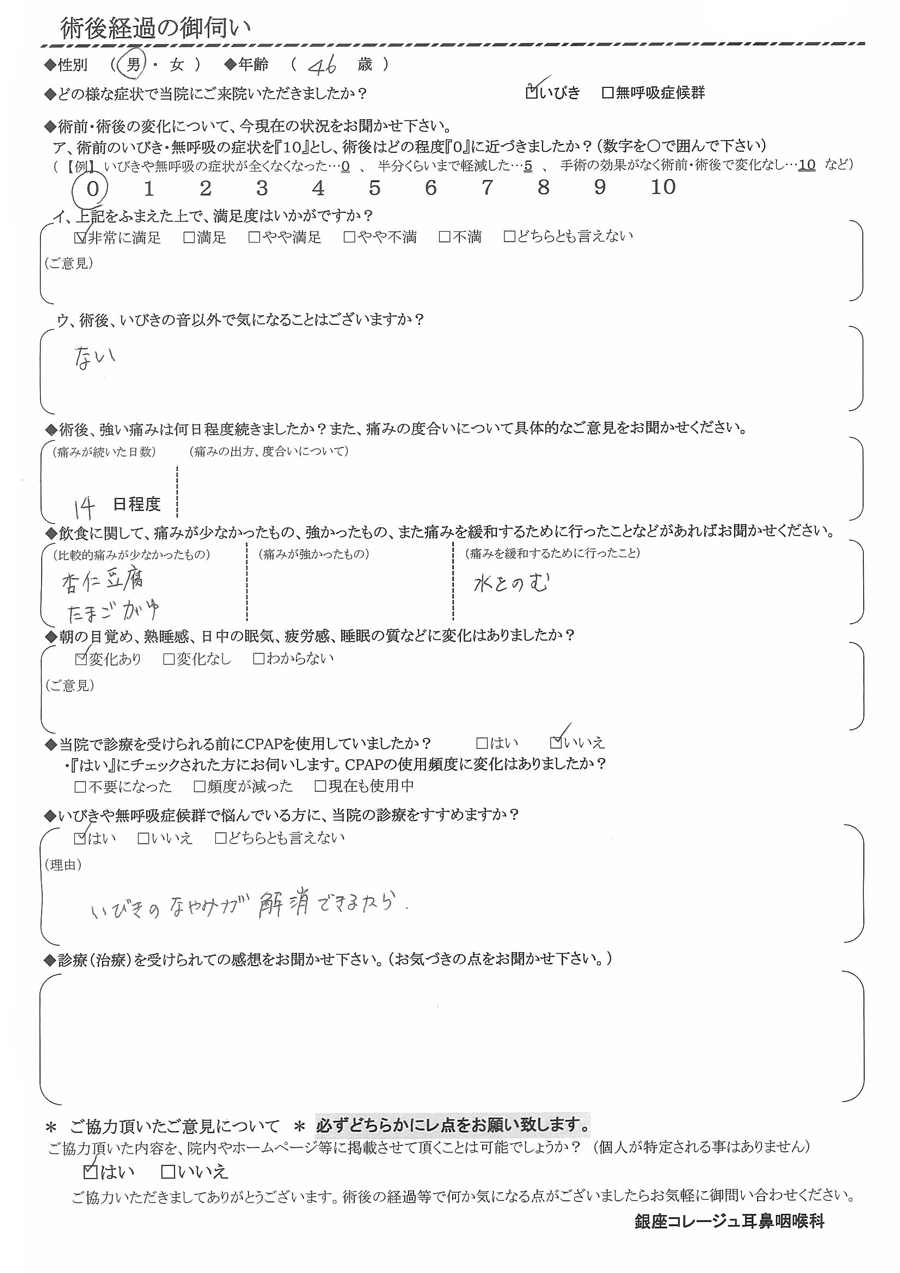 術後経過の御伺い
◆性別 （ 男 ・ 女 ） ◆年齢 （ 46 歳 ）
◆どの様な症状で当院にご来院いただきましたか？ ☑いびき □無呼吸症候群
◆術前・術後の変化について、今現在の状況をお聞かせ下さい。
ア、術前のいびき・無呼吸の症状を『10』とし、術後はどの程度『0』に近づきましたか？（数字を〇で囲んで下さい）
（【例】いびきや無呼吸の症状が全くなくなった…0 、 半分くらいまで軽減した…5 、 手術の効果がなく術前・術後で変化なし…10 など）
0 1 2 3 4 5 6 7 8 9 10
イ、上記をふまえた上で、満足度はいかがですか？
☑非常に満足 □満足 □やや満足 □やや不満 □不満 □どちらとも言えない
（ご意見）
ウ、術後、いびきの音以外で気になることはございますか？
ない
◆術後、強い痛みは何日程度続きましたか？また、痛みの度合いについて具体的なご意見をお聞かせください。
（痛みが続いた日数） （痛みの出方、度合いについて）
14 日程度
◆飲食に関して、痛みが少なかったもの、強かったもの、また痛みを緩和するために行ったことなどがあればお聞かせください。
（比較的痛みが少なかったもの） （痛みが強かったもの） （痛みを緩和するために行ったこと）
杏仁豆腐 水をのむ
たまごがゆ
◆朝の目覚め、熟睡感、日中の眠気、疲労感、睡眠の質などに変化はありましたか？
☑変化あり □変化なし □わからない
（ご意見）
◆当院で診療を受けられる前にCPAPを使用していましたか？ □はい ☑いいえ
・『はい』にチェックされた方にお伺いします。CPAPの使用頻度に変化はありましたか？
□不要になった □頻度が減った □現在も使用中
◆いびきや無呼吸症候群で悩んでいる方に、当院の診療をすすめますか？
☑はい □いいえ □どちらとも言えない
（理由）
いびきのなやみが解消できるたら.
◆診療（治療）を受けられての感想をお聞かせ下さい。（お気づきの点をお聞かせ下さい。）
＊ ご協力頂いたご意見について ＊ 必ずどちらかにレ点をお願い致します。
ご協力頂いた内容を、院内やホームページ等に掲載させて頂くことは可能でしょうか？ （個人が特定される事はありません）
☑はい □いいえ
ご協力いただきましてありがとうございます。術後の経過等で何か気になる点がございましたらお気軽に御問い合わせください。
銀座コレージュ耳鼻咽喉科